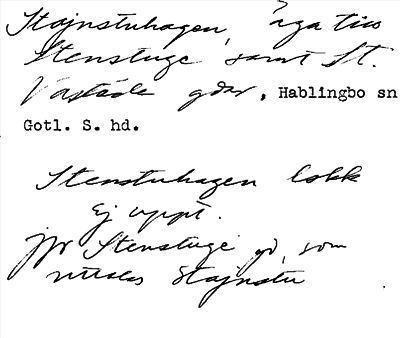 Stajnstuhagen, äga till
Stenstuge samt St.
Västäde gdar, Hablingbo sn
Gotl. S. hd.
Stenstuhagen lokk
Ej uppt.
jfr Stenstuge gd, som
uttalas Stajnstu